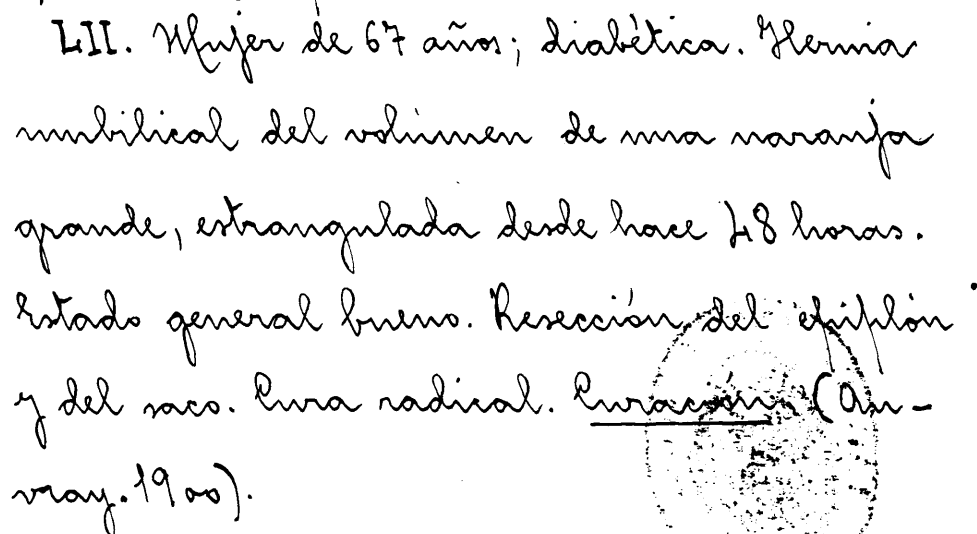 LII. Mujer de 67 años; diabética. Hernia
umbilical del volúmen de una naranja
grande, estrangulada desde hace 48 horas.
Estado general bueno. Resección del epiplón
y del saco. Cura radical. Curación (Au-
vray. 1900).